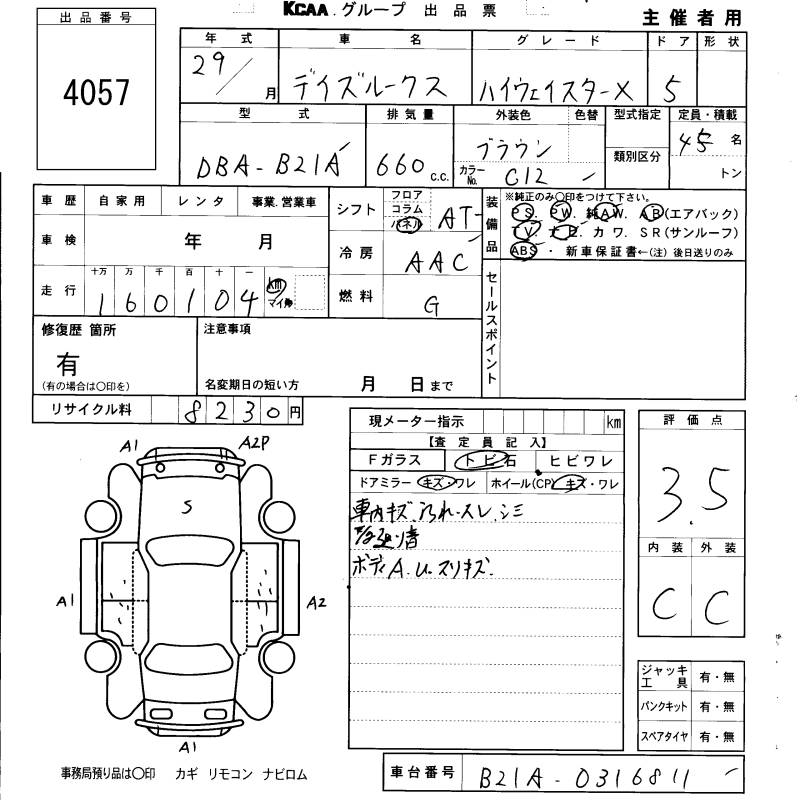 KCAA グループ 出品票
主催者用
出品番号
4057
年式 車名 グレード ドア 形状
29/ 月 デイズルークス ハイウェイスターX 5
型式 排気量 外装色 色替 型式指定 定員・積載
DBA-B21A 660 c.c. ブラウン 類別区分 45 名
カラーNo. C12 トン
車歴 自家用 レンタ 事業.営業車
シフト フロア コラム パネル AT
装備品 ※純正のみ〇印をつけて下さい。
PS. PW. 純AW. AB(エアバック)
TV. ナビ. カワ. SR(サンルーフ)
ABS・新車保証書←(注)後日送りのみ
車検 年 月
冷房 AAC
走行 十万 万 千 百 十 一 km マイル
160104
燃料 G
セールスポイント
修復歴 箇所
有
(有の場合は〇印を)
注意事項
名変期日の短い方 月 日まで
リサイクル料 8230円
現メーター指示 km
【査定員記入】
Fガラス トビ石 ヒビワレ
ドアミラー キズ・ワレ ホイール(CP) キズ・ワレ
車内キズ.汚れ.スレ.シミ
ボディA.U.スリキズ.
評価点
3.5
内装 外装
C C
A1 A2P
S
A1 A2
A1
ジャッキ工具 有・無
パンクキット 有・無
スペアタイヤ 有・無
事務局預り品は〇印 カギ リモコン ナビロム
車台番号 B21A-0316811